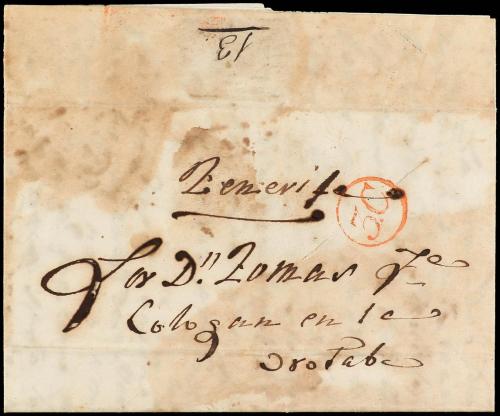 13
Tenerife
5C
Sor Dn. Tomas Fe
Cologan en la
Orotaba